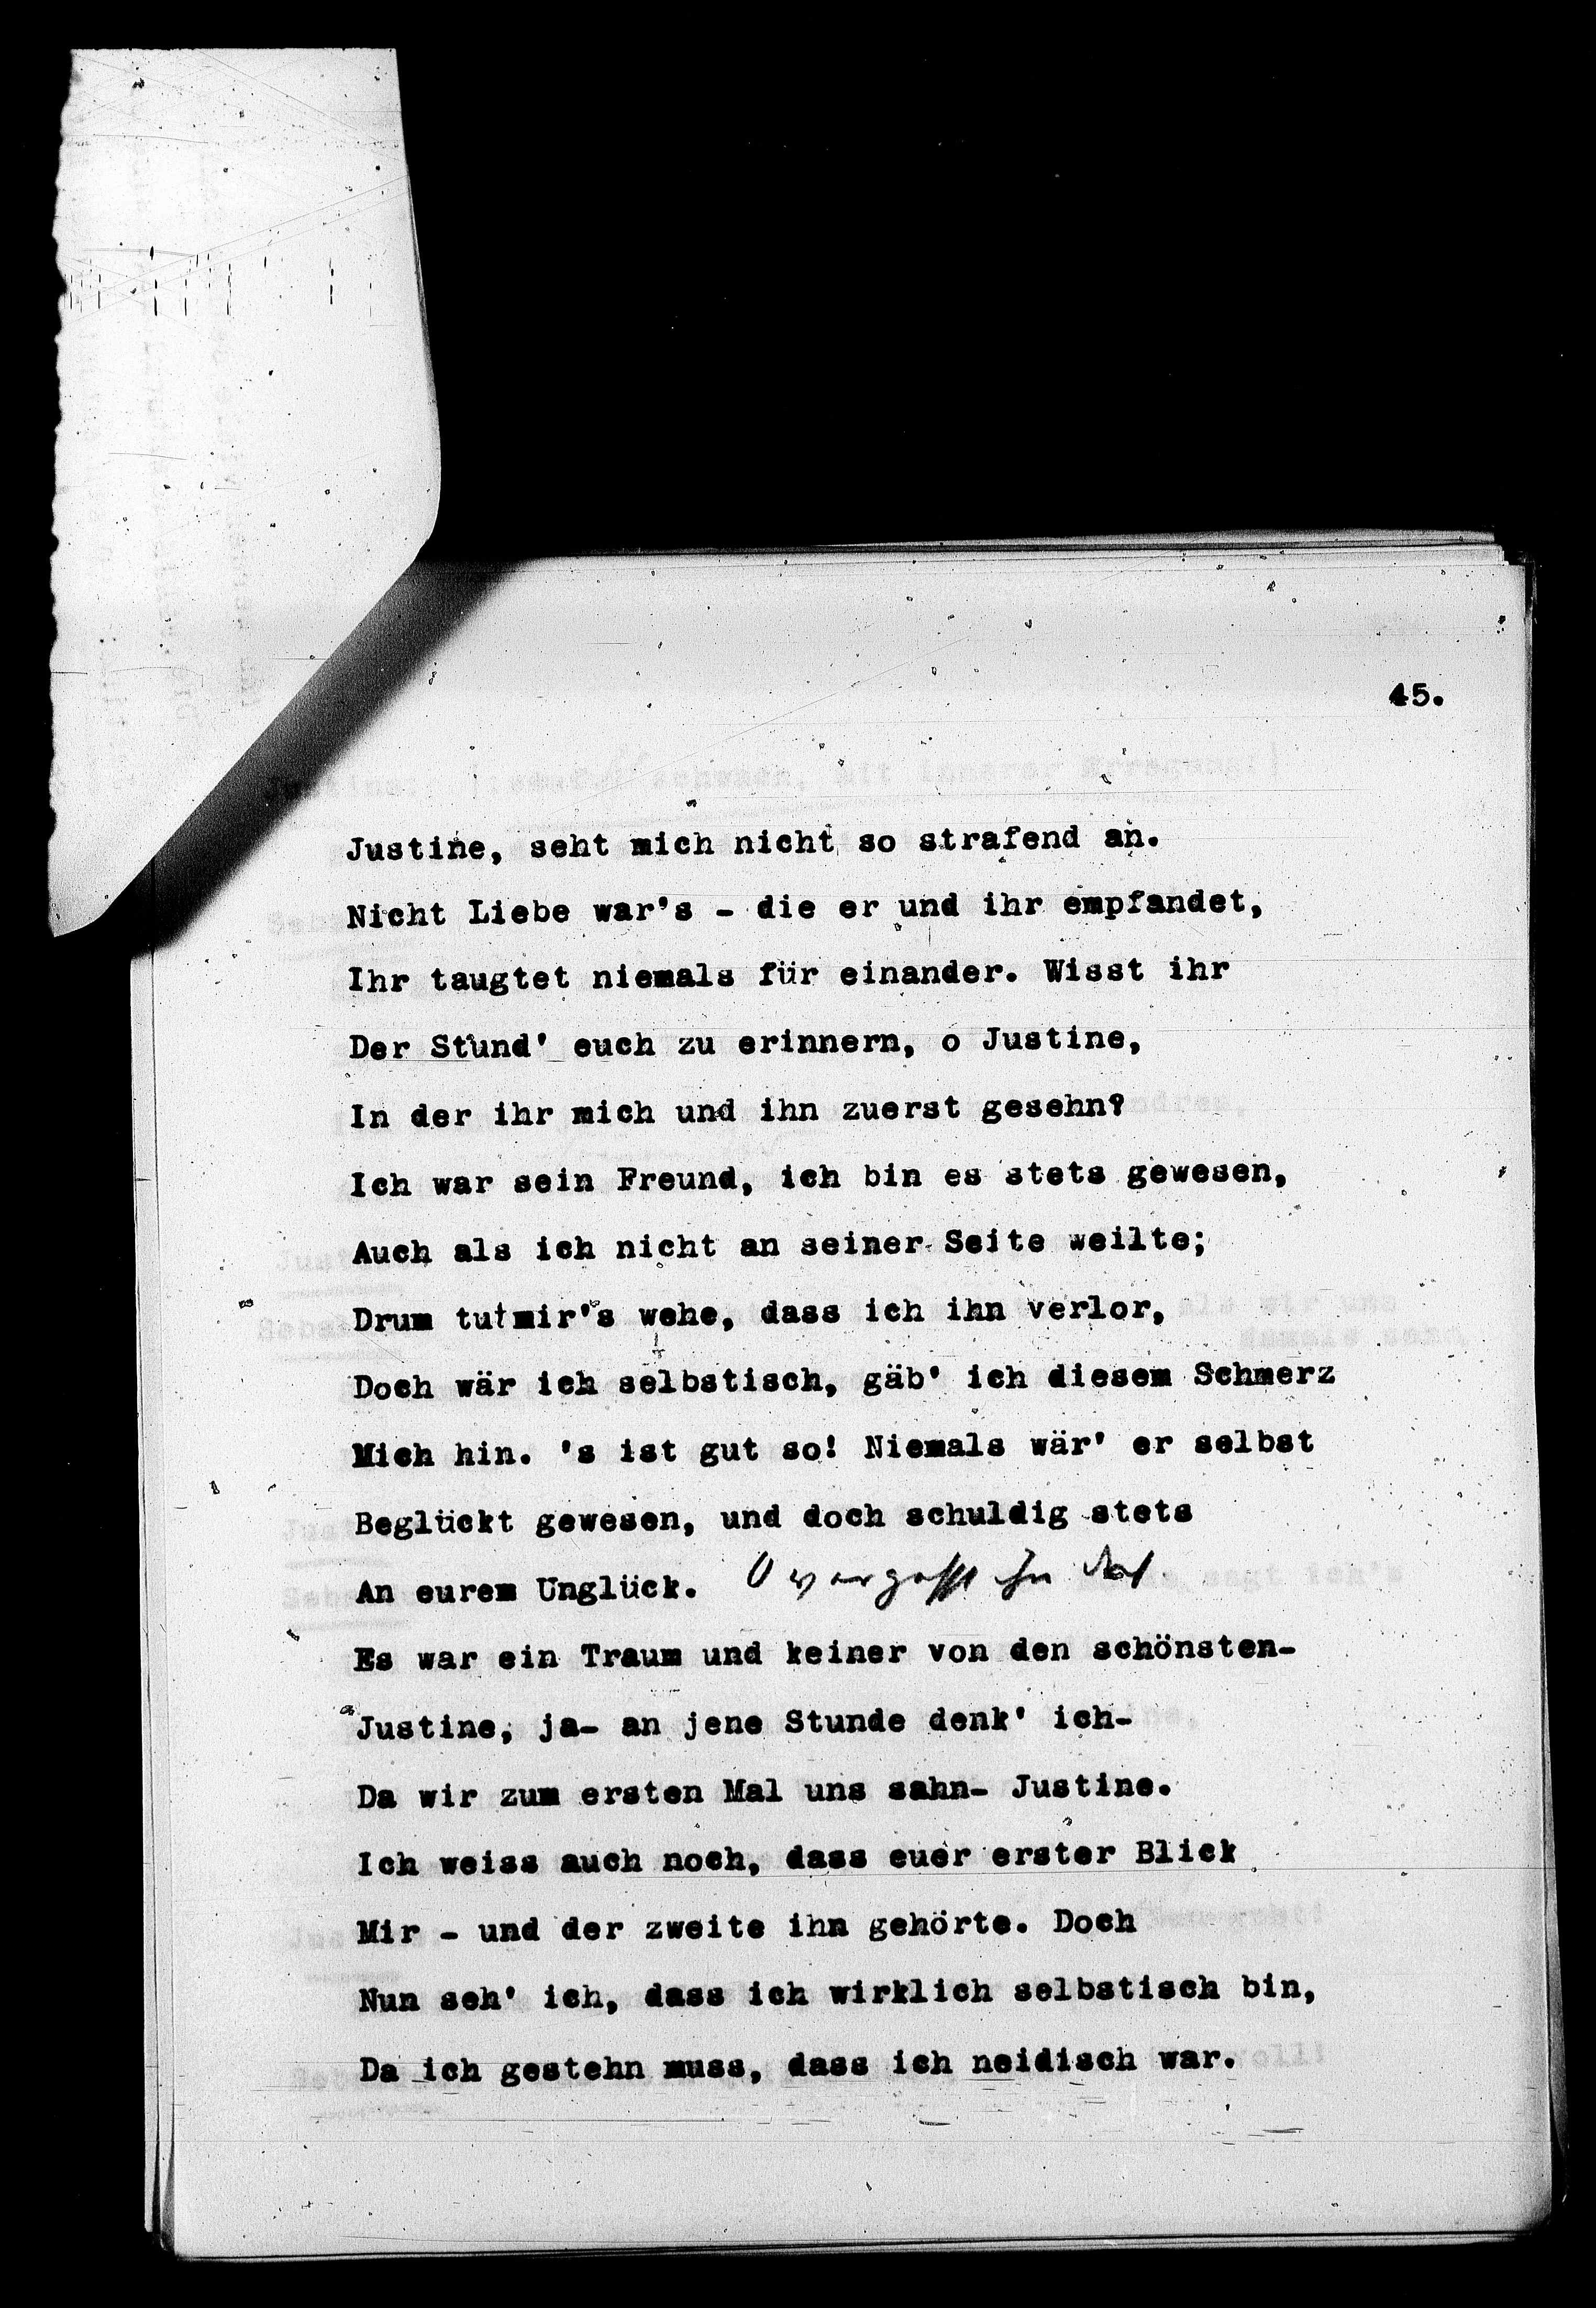 45.
Justine, seht mich nicht so strafend an.
Nicht Liebe war's - die er und ihr empfandet,
Ihr taugtet niemals für einander. Wisst ihr
Der Stund' euch zu erinnern, o Justine,
In der ihr mich und ihn zuerst gesehn?
Ich war sein Freund, ich bin es stets gewesen,
Auch als ich nicht an seiner Seite weilte;
Drum tut mir's wehe, dass ich ihn verlor,
Doch wär ich selbstisch, gäb' ich diesem Schmerz
Mich hin. 's ist gut so! Niemals wär' er selbst
Beglückt gewesen, und doch schuldig stets
An eurem Unglück. O vergesst ihn
Es war ein Traum und keiner von den schönsten-
Justine, ja- an jene Stunde denk' ich-
Da wir zum ersten Mal uns sahn- Justine.
Ich weiss auch noch, dass euer erster Blick
Mir - und der zweite ihn gehörte. Doch
Nun seh' ich, dass ich wirklich selbstisch bin,
Da ich gestehn muss, dass ich neidisch war.